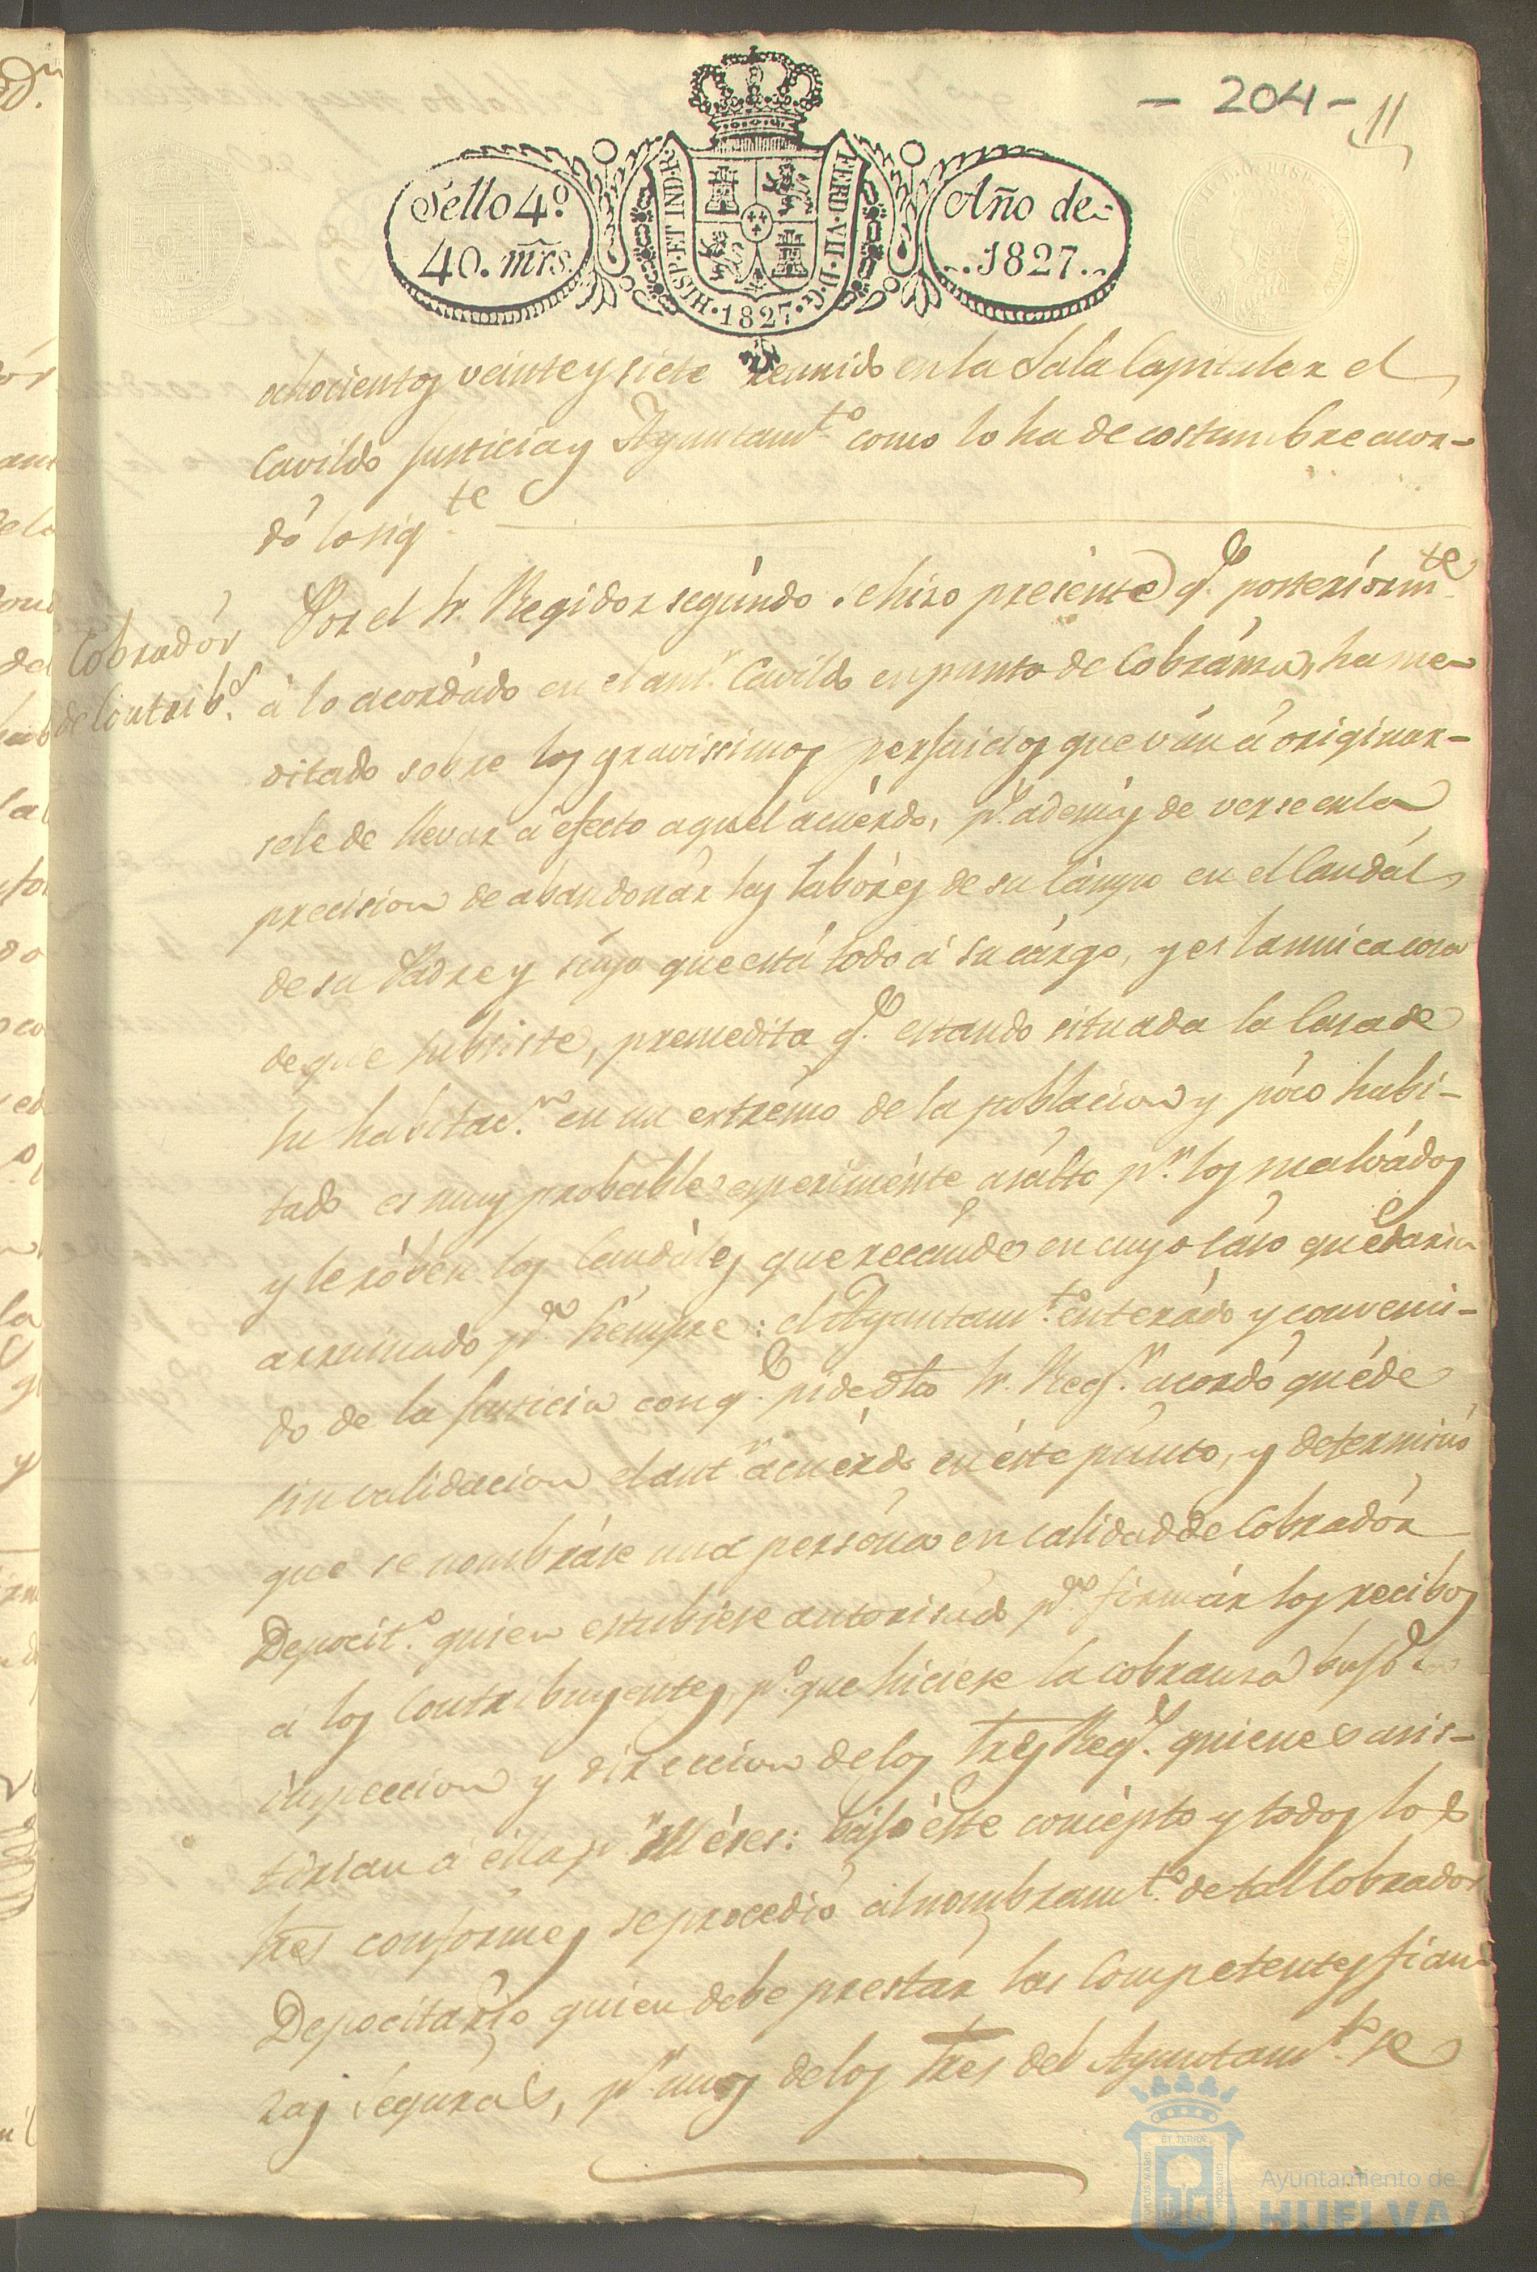 - 204 - 11
Sello 4º.
40. mrs.
HISP. ET IND. R.
FERD. VII. D. G.
. 1827 .
Año de
1827.
ochocientos veinte y siete reunido en la Sala Capitular el
Cavildo Justicia y Ayuntamto. como lo ha de costumbre acor-
dó lo sigte.
Cobradór
de Contribs.
Por el Sr. Regidor segúndo se hizo presénte q.e posteriormte.
à lo acordádo en el antr. Cavildo en punto de Cobránza, ha me
ditado sobre los gravissimos perjuicios que ván à originar-
sele de llevar à efecto aquel acuérdo, pr. además de verse en la
precision de abandonár las labóres de su Cámpo en el Caudál
de su Padre y súyo que está todo á su cárgo, y es la unica cosa
de que subsiste, premedita q.e estando situada la Casa de
su habitacn. en un extrémo de la poblacion y póco habi-
tado es muy probable experiménte asálto pr. los malvádos
y le róben los Caudáles que recaude en cuyo cáso quedaria
arruinado pa. siémpre: el Ayuntamto. enterádo y conveni-
do de la Justicia con q.e pide dho Sr. Regr. acordó quéde
sin validacion el antr. acuérdo en éste púnto, y determinó
que se nombráse una persóna en calidad de Cobradór
Depocito. quien estubiese autorisado pa. firmár los recibos
á los Contribuyentes, po. que hiciese la cobransa bajo la
inspeccion y direccion de los tres Regs. quienes asis-
tirian á élla pr. Méses: bájo éste concépto y todos los
tres confórmes se procedió al nombramto. de tal Cobrador
Depocitário quien debe prestár las Competentes fian-
zas segúras, pr. unos de los tres del Ayuntamto. se
Ayuntamiento de
HUELVA